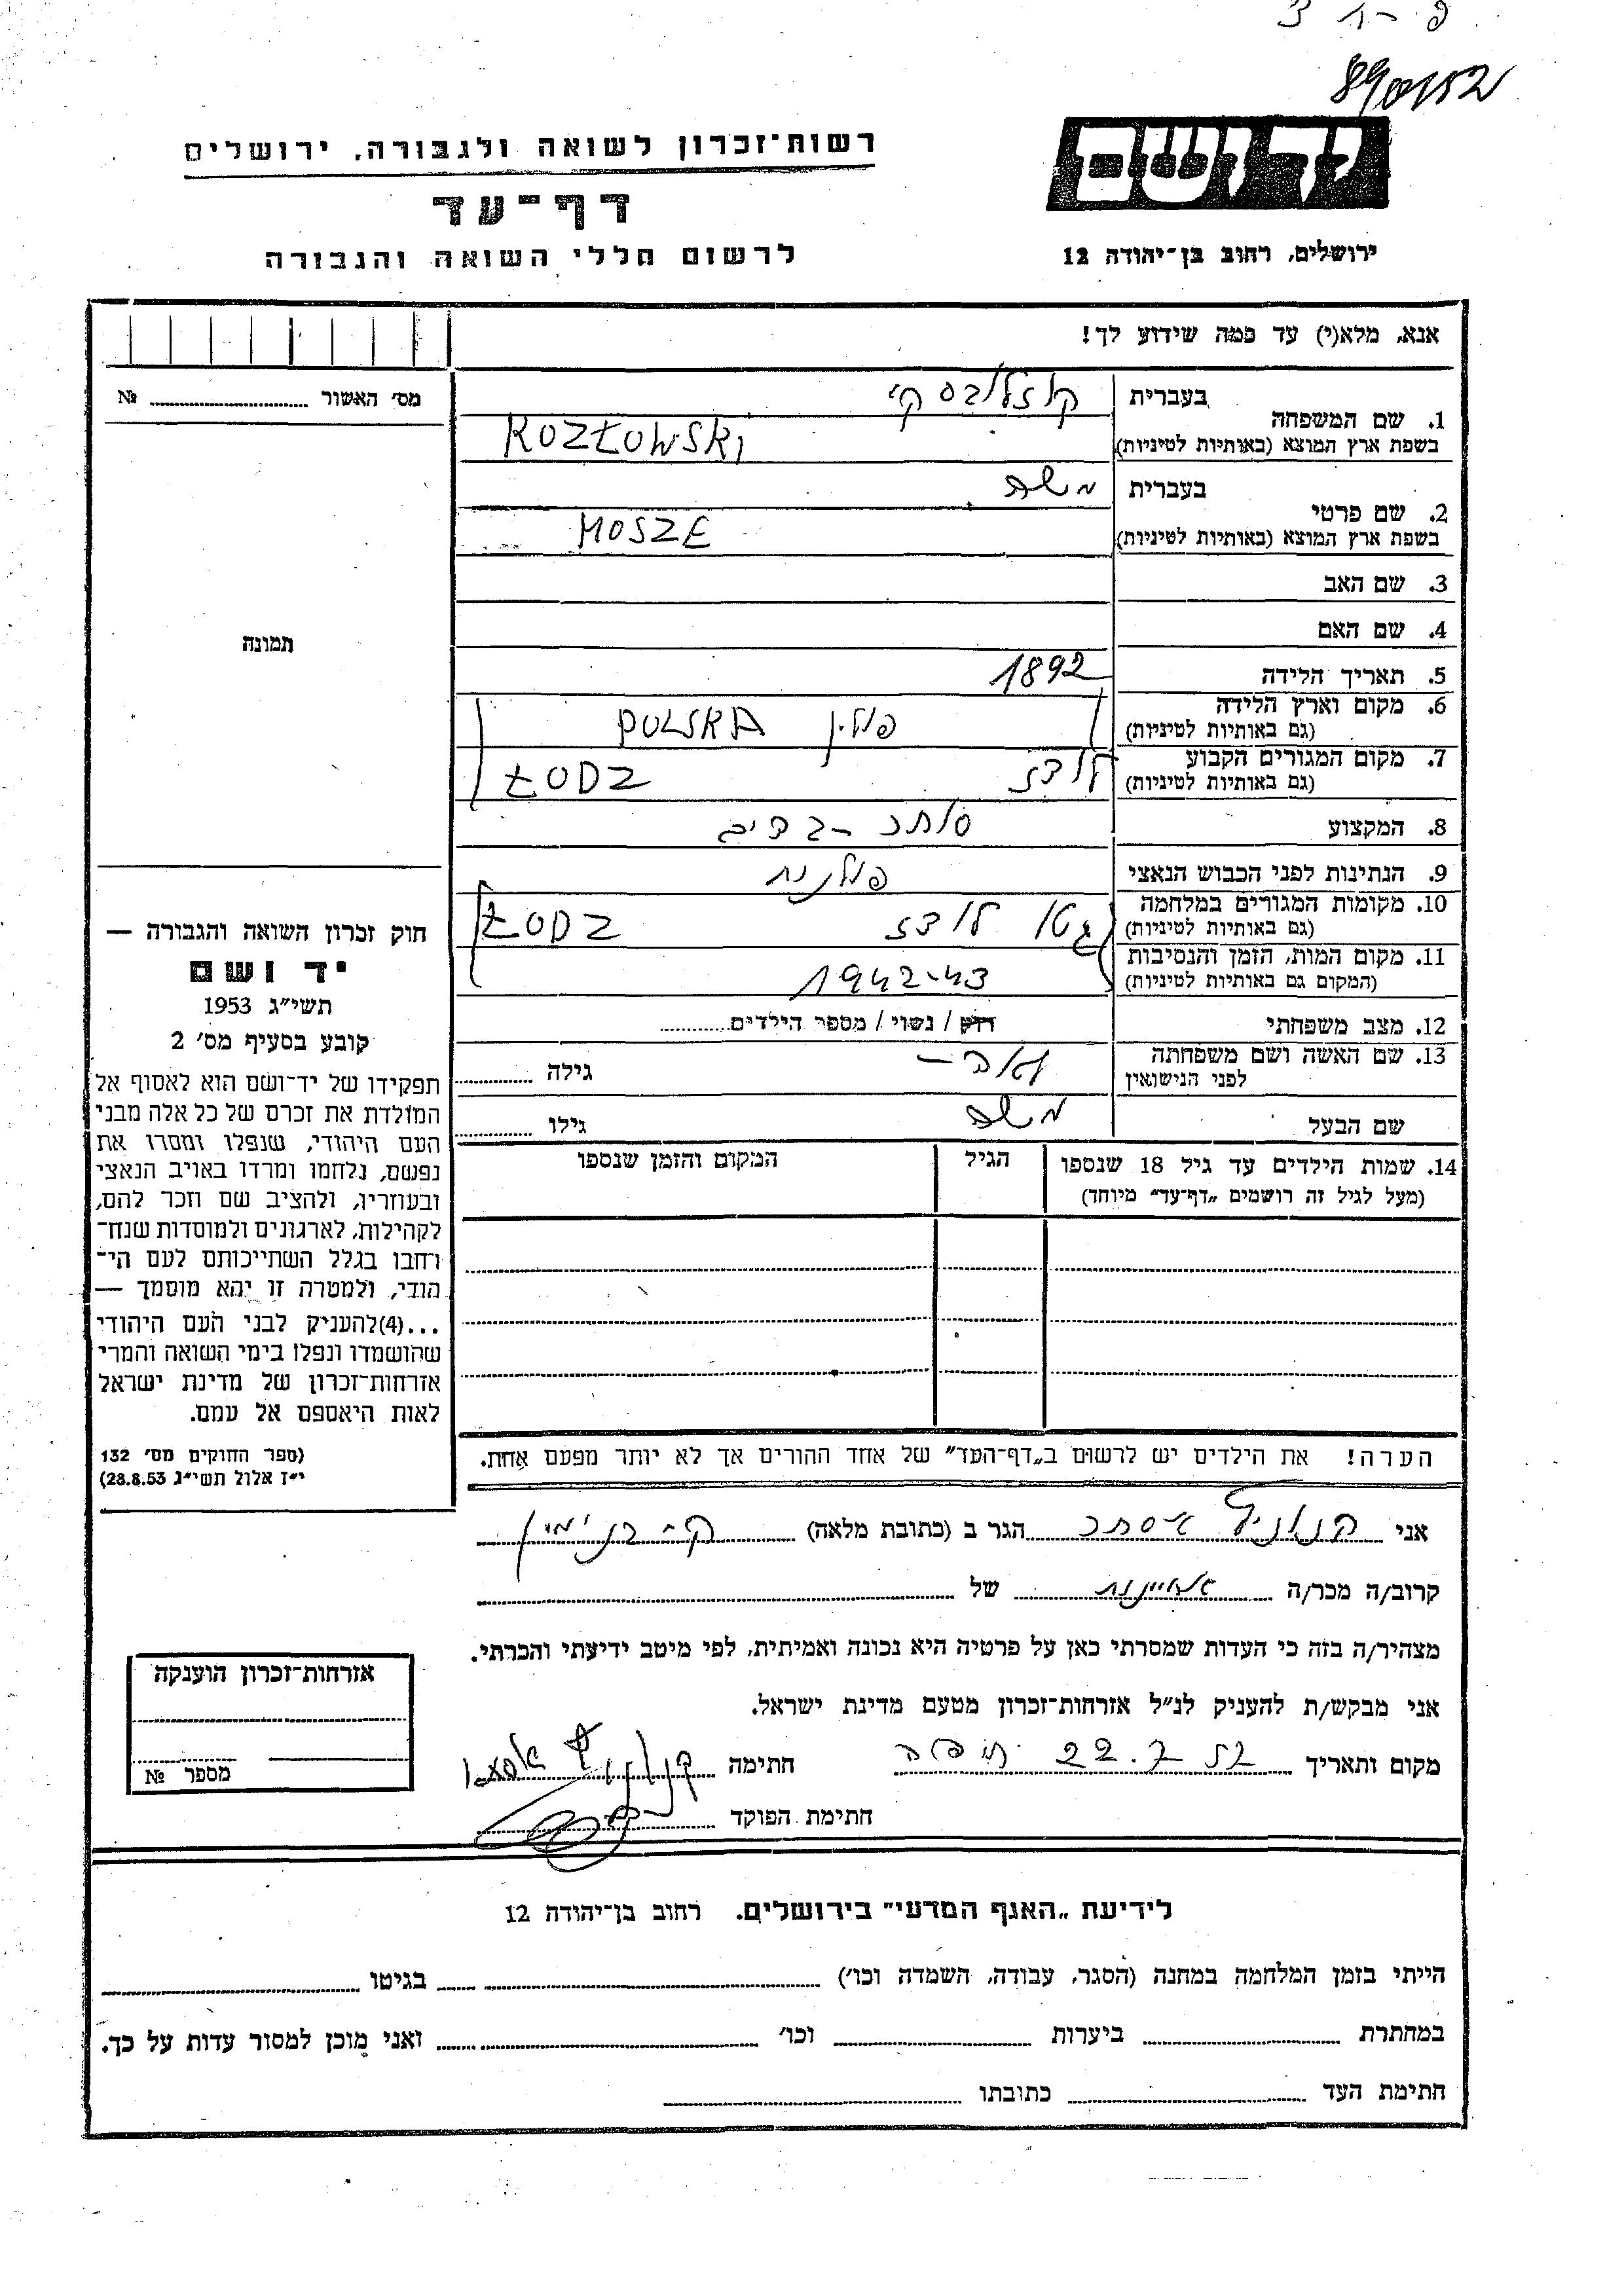 890152
יד ושם
רשות־זכרון לשואה ולגבורה, ירושלים
דף־עד
לרשום חללי השואה והגבורה
ירושלים, רחוב בן־יהודה 12
אנא, מלא(י) עד כמה שידוע לך!
מס׳ האשור № 
1. שם המשפחה
בעברית קוזלובסקי
בשפת ארץ המוצא (באותיות לטיניות) KOZŁOWSKI
2. שם פרטי
בעברית משה
בשפת ארץ המוצא (באותיות לטיניות) MOSZE
3. שם האב
4. שם האם
5. תאריך הלידה 1892
6. מקום וארץ הלידה
(גם באותיות לטיניות) פולין POLSKA
7. מקום המגורים הקבוע
(גם באותיות לטיניות) לודז ŁODZ
8. המקצוע סוחר בדים
9. הנתינות לפני הכבוש הנאצי פולנית
10. מקומות המגורים במלחמה
(גם באותיות לטיניות) גטו לודז ŁODZ
11. מקום המות, הזמן והנסיבות
(המקום גם באותיות לטיניות) 1942-43
12. מצב משפחתי רווק / נשוי / מספר הילדים
13. שם האשה ושם משפחתה
לפני הנישואין גילה
שם הבעל משה גילו
14. שמות הילדים עד גיל 18 שנספו
(מעל לגיל זה רושמים „דף־עד״ מיוחד)
הגיל
המקום והזמן שנספו
הערה! את הילדים יש לרשום ב„דף־העד״ של אחד ההורים אך לא יותר מפעם אחת.
תמונה
חוק זכרון השואה והגבורה —
יד ושם
תשי״ג 1953
קובע בסעיף מס׳ 2
תפקידו של יד־ושם הוא לאסוף אל
המולדת את זכרם של כל אלה מבני
העם היהודי, שנפלו ומסרו את
נפשם, נלחמו ומרדו באויב הנאצי
ובעוזריו, ולהציב שם וזכר להם,
לקהילות, לארגונים ולמוסדות שנח־
רחבו בגלל השתייכותם לעם הי־
הודי, ולמטרה זו יהא מוסמך —
...(4)להעניק לבני העם היהודי
שהושמדו ונפלו בימי השואה והמרי
אזרחות־זכרון של מדינת ישראל
לאות היאספם אל עמם.
(ספר החוקים מס׳ 132
י״ז אלול תשי״ג 28.8.53)
אני אסתר הגר ב (כתובת מלאה) ק- בנימין
קרוב/ה מכר/ה של
מצהיר/ה בזה כי העדות שמסרתי כאן על פרטיה היא נכונה ואמיתית, לפי מיטב ידיעתי והכרתי.
אני מבקש/ת להעניק לנ״ל אזרחות־זכרון מטעם מדינת ישראל.
מקום ותאריך חיפה 22.7 חתימה
חתימת הפוקד
אזרחות־זכרון הוענקה
מספר №
לידיעת „האגף המדעי״ בירושלים. רחוב בן־יהודה 12
הייתי בזמן המלחמה במחנה (הסגר, עבודה, השמדה וכו׳) בגיטו
במחתרת ביערות וכו׳ ואני מוכן למסור עדות על כך.
חתימת העד כתובתו